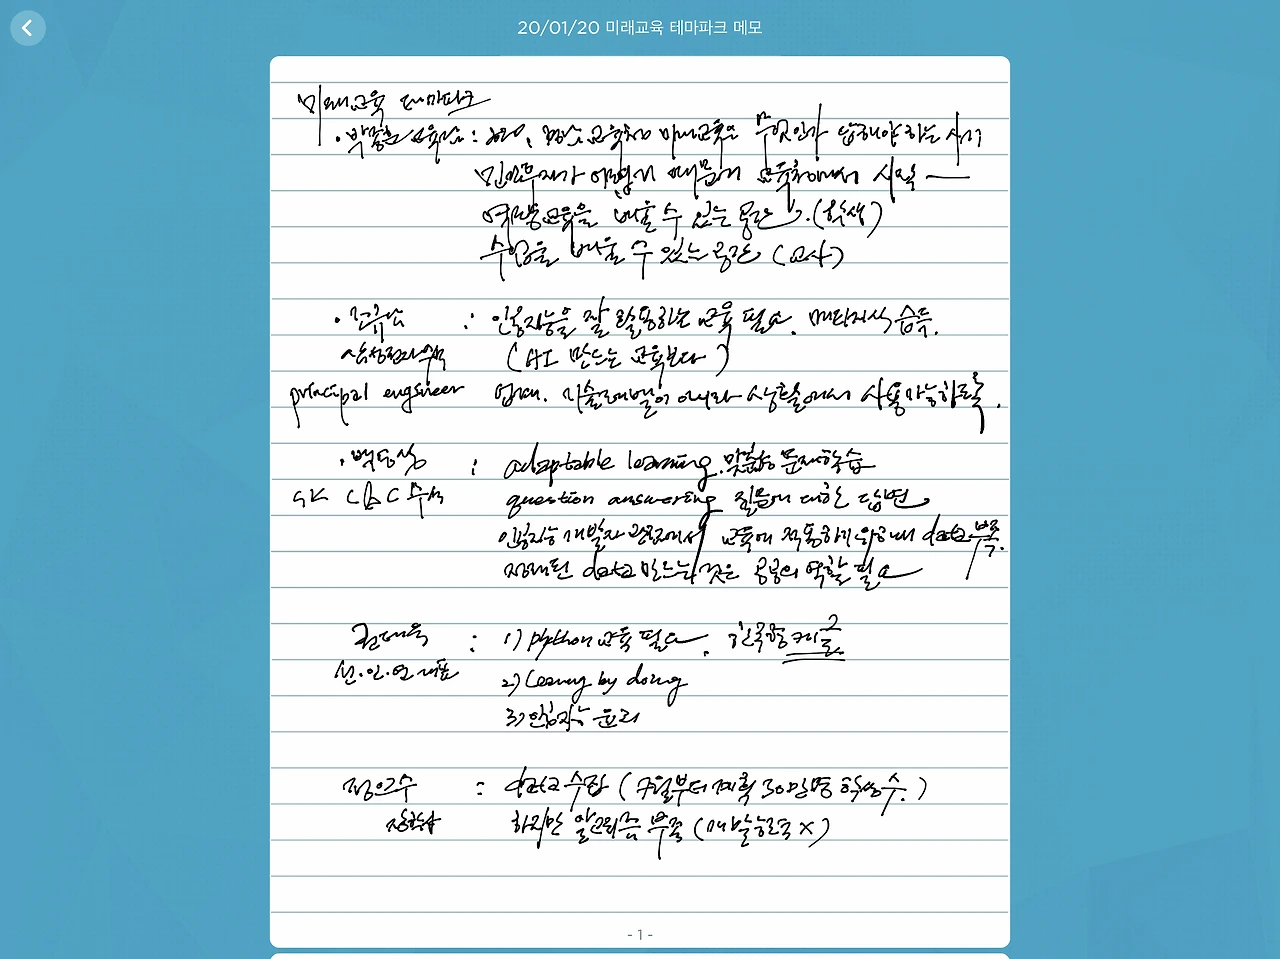 20/01/20 미래교육 테마파크 메모
미래교육 테마파크
· 박종훈 교육감 : 교육부 미래교육은 무엇인가 답해야 하는 시기
민간투자가 어렵기 때문에 교육청에서 시작
역량교육을 배울 수 있는 공간. (학생)
수업을 배울 수 있는 공간 (교사)
· : 인공지능을 잘 활용하는 교육 필요. 매타지식 습득.
삼성전자 수석 (AI 만드는 교육보다)
principal engineer 업계. 기술레벨이 아니라 상황에서 사용가능하도록.
· 백 : adaptable learning. 맞춤형 문제학습
SK C&C 수석 question answering 질문에 대한 답변
인공지능 개발자 관점에서 교육에 적용하기 위해 data 부족.
정제된 data 만드는 것은 공공의 역할 필요
: 1) python 교육 필요. 한국용
대표 2) Learning by doing
3) 인공지능 윤리
: data 수집 (7월부터 계획 30만명 학생수.)
하지만 알고리즘 부족
- 1 -